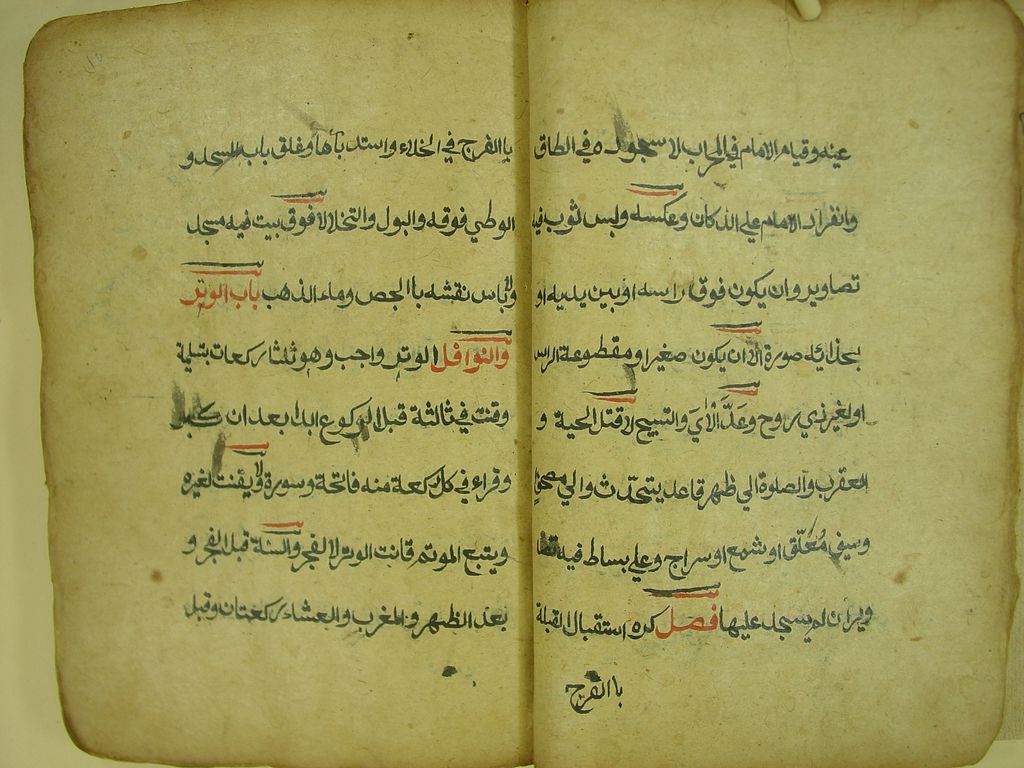 عينه وقيام الامام في المحراب لا سجوده في الطاق
وانفراد الامام علي الدكان وعكسه ولبس ثوب فيه
تصاوير وان يكون فوق راسه او بين يديه او
بحذائه صورة الا ان يكون صغيرا ومقطوعة الراس
او لغير ذي روح وعَدَّ الْاٰيَ والتسبيح لا قتل الحية و
العقرب والصلوة الي ظهر قاعد يتحدث والي مصحف
وسيف مُعَلّق او شمع او سراج وعلي بساط فيه تصا
ويران لم يسجد عليها فصل كره استقبال القبلة
باالفرج
باالفرج في الخلاء واستدبارها وغلق باب المسجد و
الوطي فوقه والبول والتخلا لا فوق بيت فيه مسجد
ولا باس نقشه باالجص وماء الذهب باب الوتر
والنوافل الوتر واجب وهو ثلثا ركعات بتسلية
وقنت في ثالثة قبل الركوع ابدا بعد ان كبر
وقراء في كل ركعة منه فاتحة وسورة ولا يقنت لغيره
ويتبع الموتم قانت الوتر لا الفجر والسنة قبل الفجر و
بعد الظهر والمغرب والعشاء ركعتان وقبل